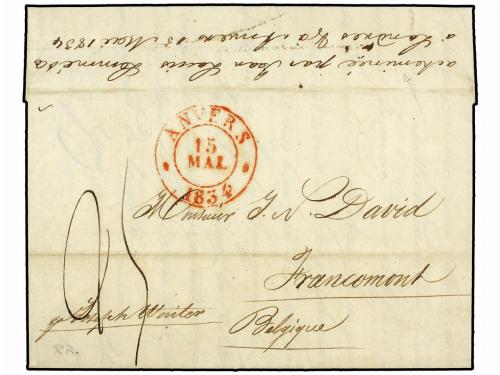 acheminée par Jean Louis Lemmé &a
à Londres via Anvers 15 Mai 1834
ANVERS
15
MAI.
1834
Monsieur J. N. David
Francomont
Belgique
pr Joseph Winter
RR.